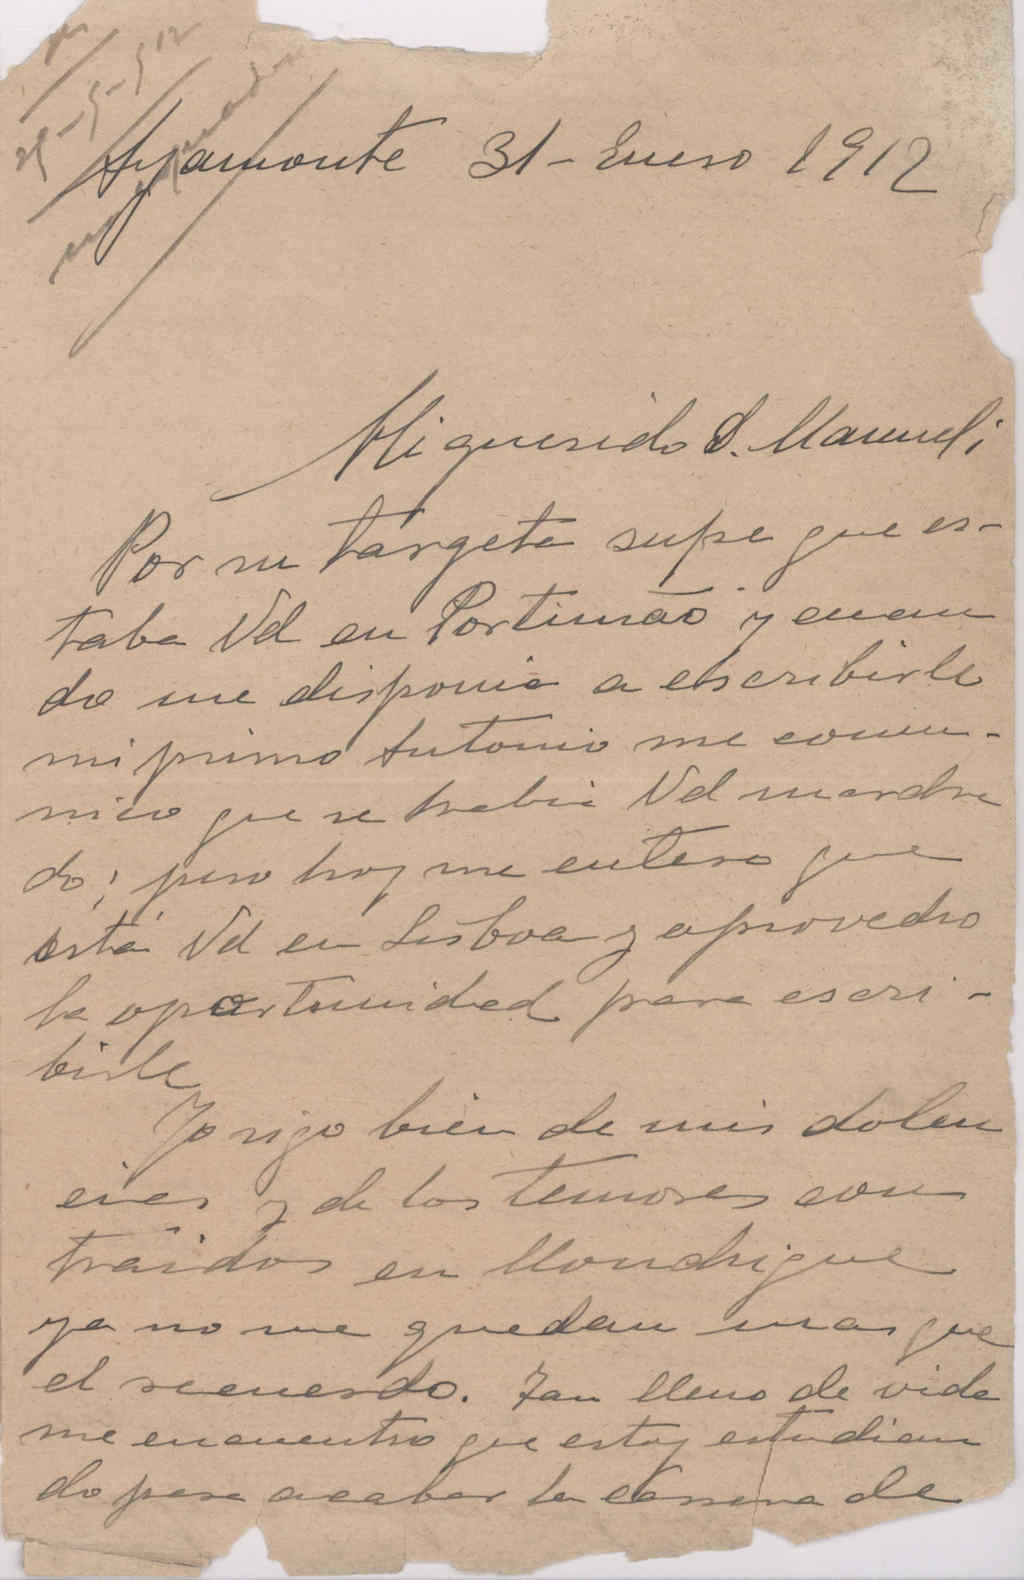 29-5-912
Ayamonte 31-Enero 1912
Mi querido D. Manuel;
Por su targeta supe que es-
taba Vd en Portimão y cuan
do me disponia a escribirle
mi primo Antonio me comu-
nico que se habia Vd marcha
do; pero hoy me entero que
está Vd en Lisboa y aprovecho
la oportunidad para escri-
birle
Yo sigo bien de mis dolen
cias y de los temores con
traidos en
ya no me quedan mas que
el recuerdo. Tan lleno de vida
me encuentro que estoy estudian
do para acabar la carrera de